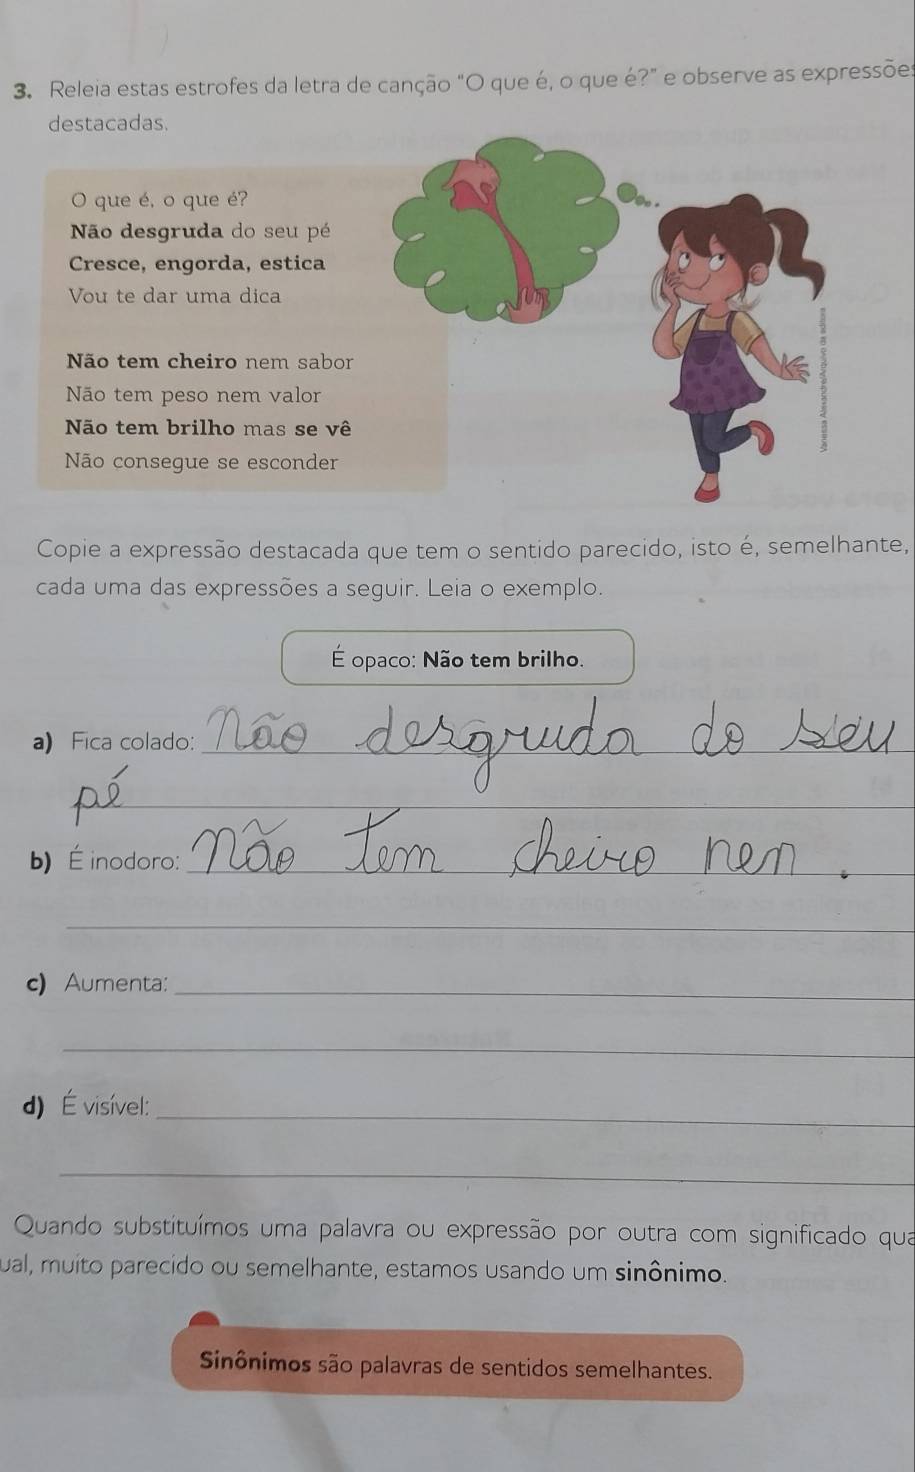 3. Releia estas estrofes da letra de canção "O que é, o que é?" e observe as expressões
destacadas.
O que é, o que é?
Não desgruda do seu pé
Cresce, engorda, estica
Vou te dar uma dica
Não tem cheiro nem sabor
Não tem peso nem valor
Não tem brilho mas se vê
Não consegue se esconder
Vanessa Alexandre/Arquivo da editora
Copie a expressão destacada que tem o sentido parecido, isto é, semelhante,
cada uma das expressões a seguir. Leia o exemplo.
É opaco: Não tem brilho.
a) Fica colado: Não desgruda do seu
pé
b) É inodoro: não tem cheiro nen .
c) Aumenta:
d) É visível:
Quando substituímos uma palavra ou expressão por outra com significado qua
ual, muito parecido ou semelhante, estamos usando um sinônimo.
Sinônimos são palavras de sentidos semelhantes.